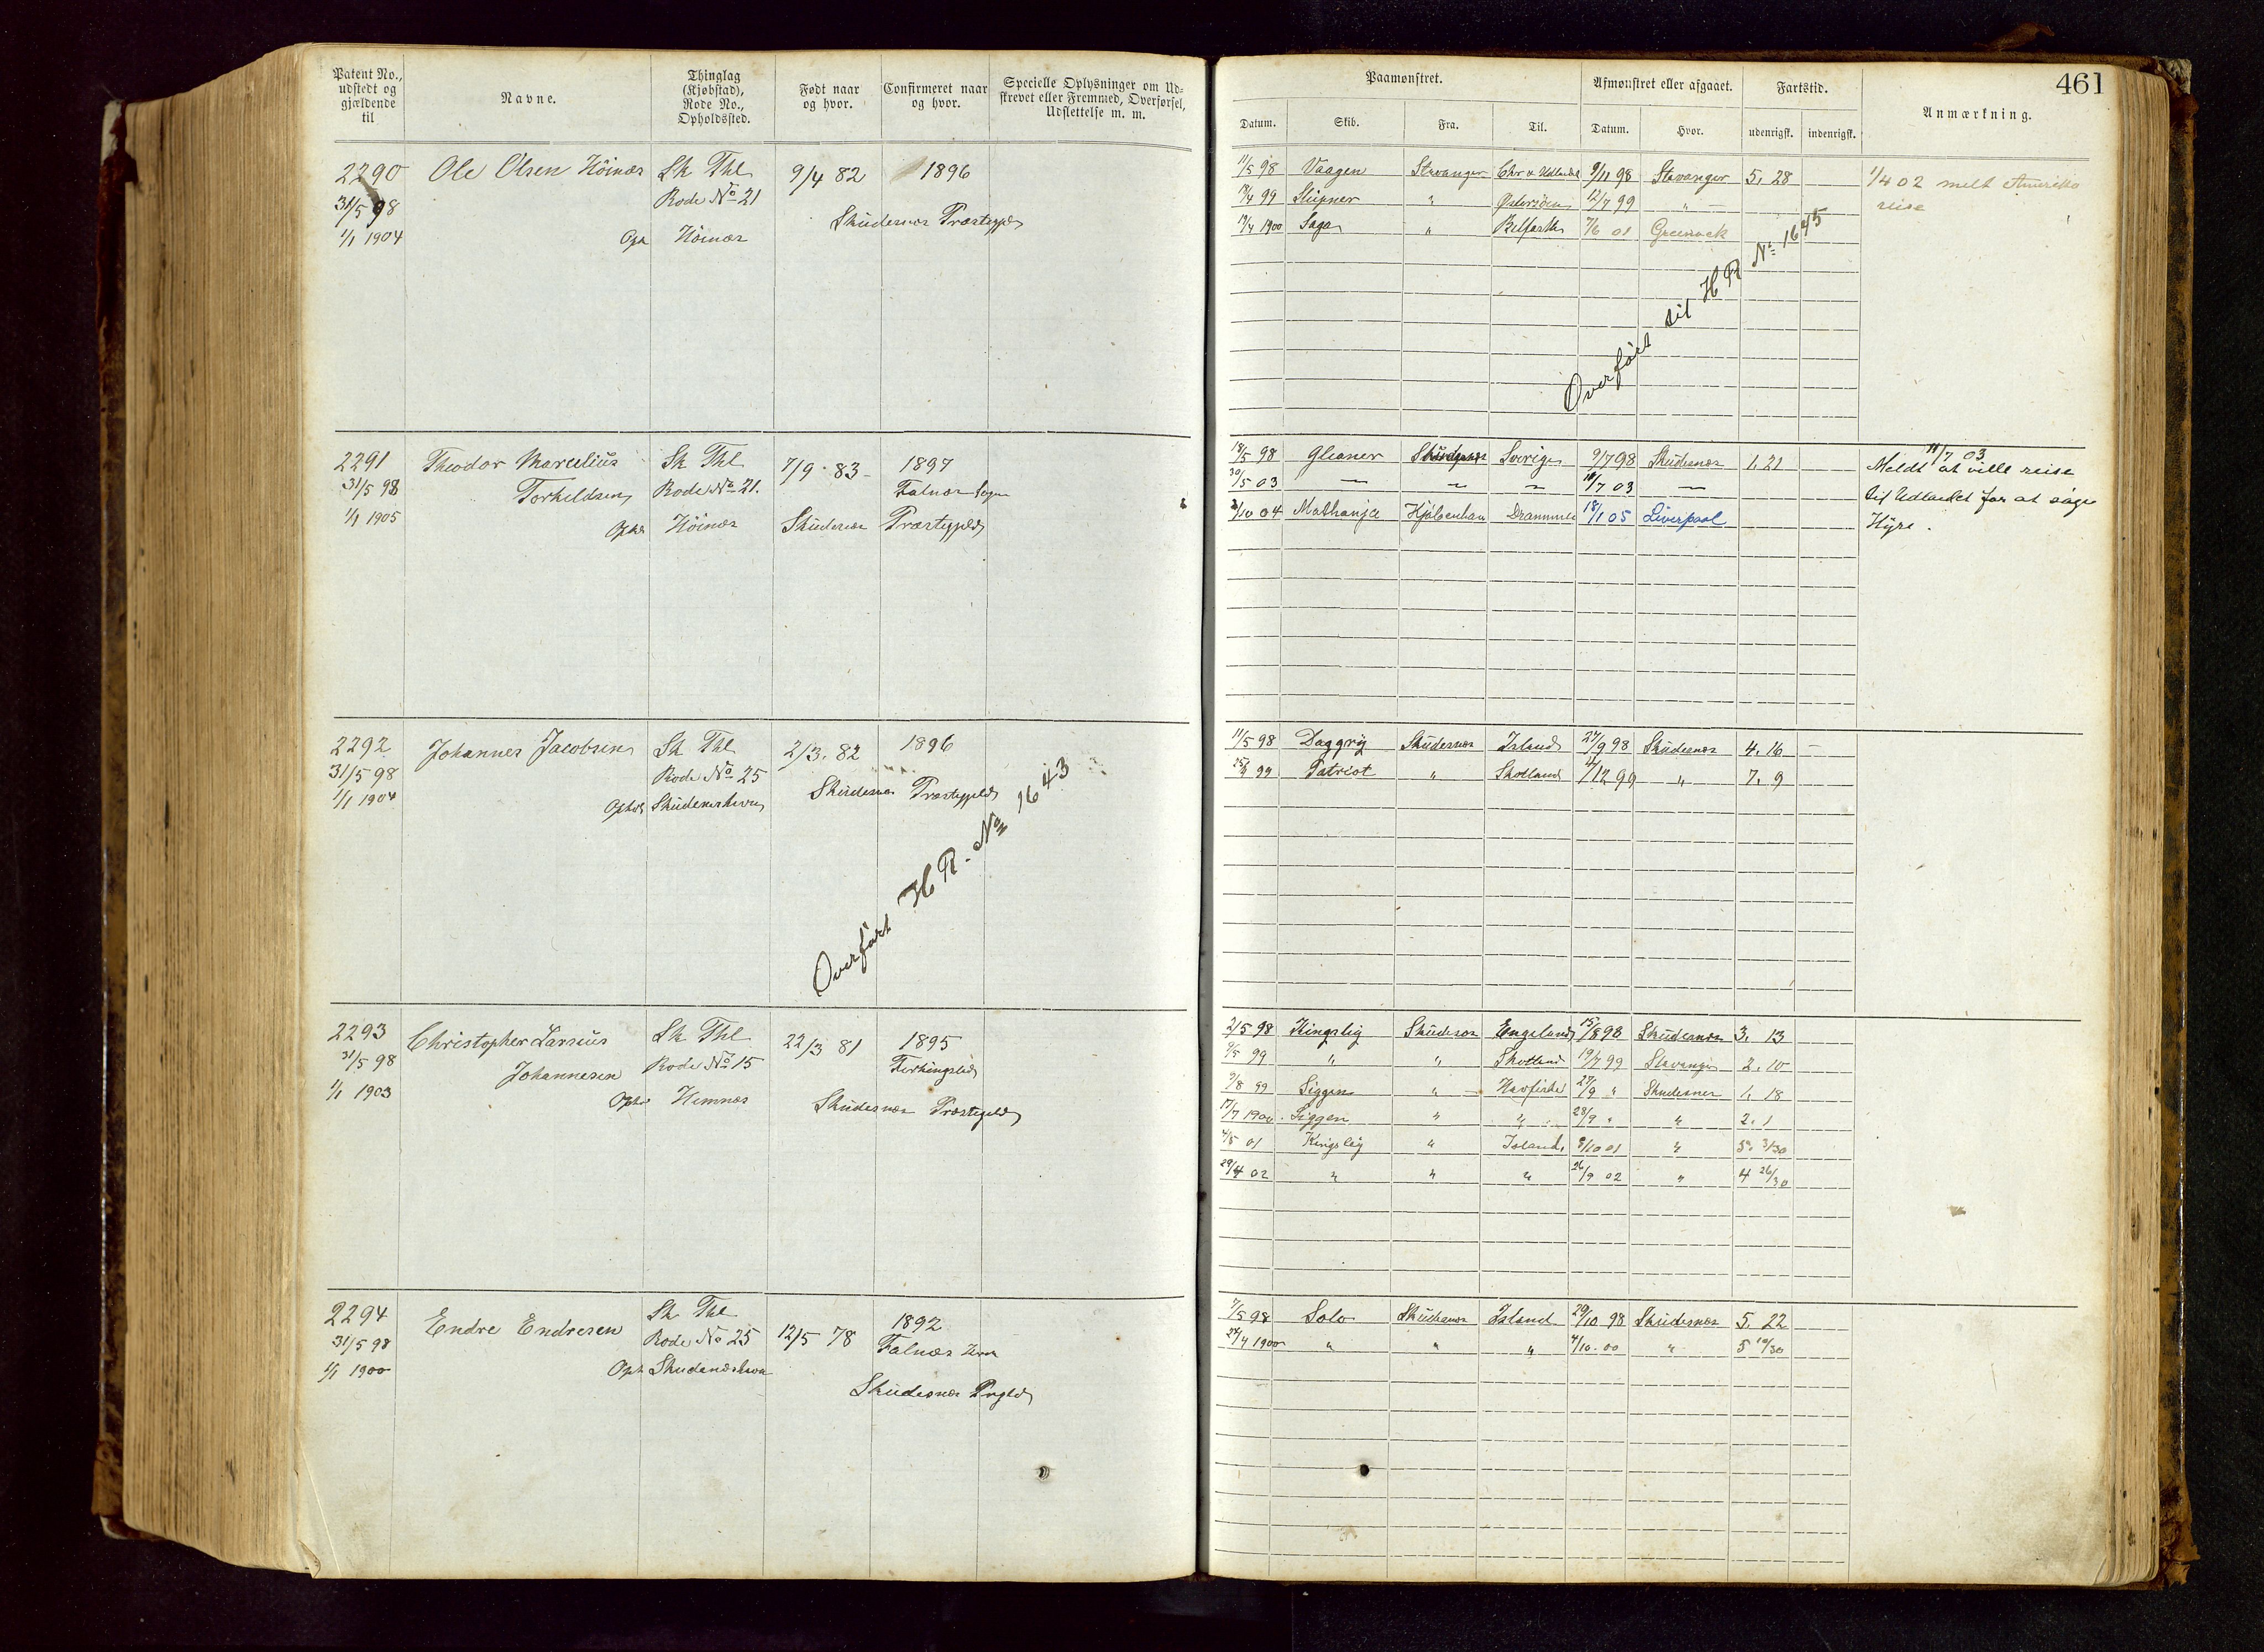 461
Patent No., udstedt og gjældende til
Navne.
Thinglag (Kjøbstad), Rode No., Opholdssted.
Født naar og hvor.
Confirmeret naar og hvor.
Specielle Oplysninger om Udskrevet eller Fremmed, Overførsel, Udslettelse m. m.
Paamønstret.
Afmønstret eller afgaaet.
Fartstid.
Anmærkning.
Datum. Skib. Fra. Til. Datum. Hvor. udenrigsk. indenrigsk.
2290 Ole Olsen Höinæs Sk Thl 9/4 82 1896
31/5 98 Rode No 21
1/1 1904 Oph Höinæs Skudesnæs Præstegjeld
11/5 98 Vaagen Stavanger Chr v Udlandet 9/11 98 Stavanger 5. 28
99 Sleipner " Østersöen 12/7 99 " —
1900 Saga " Belfast 7/6 01 Greenock
1/4 02 meldt Amerika
reise
Overført til H R No 1645
2291 Theodor Marcelius Sk Thl 7/9 83 1897
31/5 98 Torkildsen Rode No 21. Falnæs Sogn
1/1 1905 Opho Höinæs Skudesnæs Præstegjeld
18/5 98 Gleaner Skudesnæs Sverige 9/7 98 Skudesnæs 1. 21
30/5 03 — — — 10/7 03 —
04 Mathanja Kjöbenhavn Drammen 18/1 05 Liverpool
11/7 03
Meldt at ville reise
til Udlandet for at söge
Hyre.
2292 Johannes Jacobsen Sk Thl 2/3. 82 1896
31/5 98 Rode No 25
1/1 1904 Opho Skudeneshavn Skudesnæs Præstegjeld
Overført H R. No 1643
11/5 98 Daggry Skudesnæs Island 27/9 98 Skudesnæs 4. 16 —
99 Patriot " Skotland 12 99 " 7. 9
2293 Christopher Larsius Sk Thl 22/3 81 1895
31/5 98 Johannesen Rode No 15 Ferkingstad
1/1 1903 Opho Hemnæs Skudesnæs Præstegjeld
2/5 98 Kingsley Skudesnæs Engeland 15/8 98 Skudesnæs 3. 13
9/5 99 " " Skotland 19/7 99 Stavanger 2. 10
9/8 99 Siggen " Havfiske 27/9 " Skudesnes 1. 18
17/7 1900. Siggen " " 28/9 " " 2. 1
01 Kingsley " Island 01 " 5. 3/30
29/4 02 " " " 26/9 02 " 4 26/30
2294 Endre Endresen Sk Thl 12/5 78 1892
31/5 98 Rode No 25 Falnæs
1/1 1900 Oph Skudenæshavn Skudesnæs Prgld
7/5 98 Solo Skudesnæs Island 29/10 98 Skudesnæs 5. 22
24/4 1900 " " " 4/10. 00 " 5 10/30